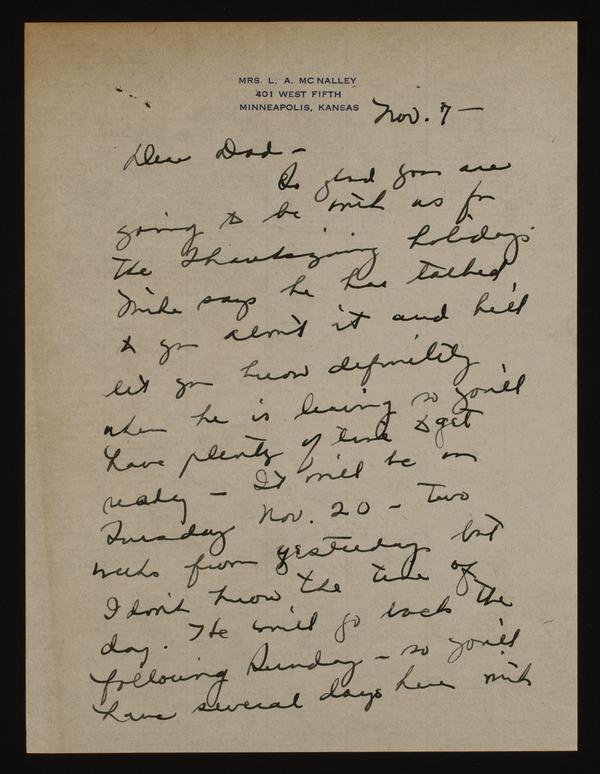 MRS. L. A. MCNALLEY
401 WEST FIFTH
MINNEAPOLIS, KANSAS
Nov. 7 —
Dear Dad —
So glad you are
going to be with us for
the Thanksgiving holidays.
Mike says he has talked
to you about it and he'll
let you know definitely
when he is leaving so you'll
have plenty of time to get
ready — It will be on
Tuesday Nov. 20 — two
weeks from yesterday but
I don't know the time of
day. He will go back the
following Sunday — so you'll
have several days here with